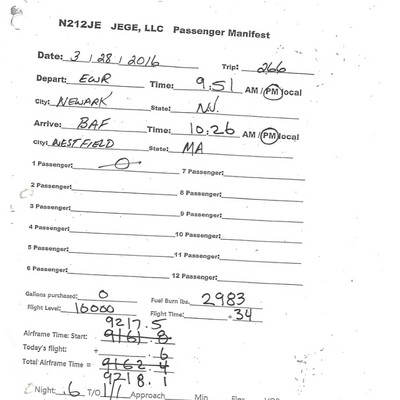 N212JE JEGE, LLC Passenger Manifest
Date: 3 | 28 | 2016 Trip: 266
Depart: EWR Time: 9:51 AM / PM local
City: NEWARK State: NJ.
Arrive: BAF Time: 10:26 AM / PM local
City: WESTFIELD State: MA
1 Passenger: 7 Passenger:
2 Passenger: 8 Passenger:
3 Passenger: 9 Passenger:
4 Passenger: 10 Passenger:
5 Passenger: 11 Passenger:
6 Passenger: 12 Passenger:
Gallons purchased: 0 Fuel Burn lbs. 2983
Flight Level: 16000 Flight Time: +34
9217.5
Airframe Time: Start: 9161.8
Today's flight: + .6
Total Airframe Time = 9162.4
9218.1
Night .6 T/O 1/1 Approach Min